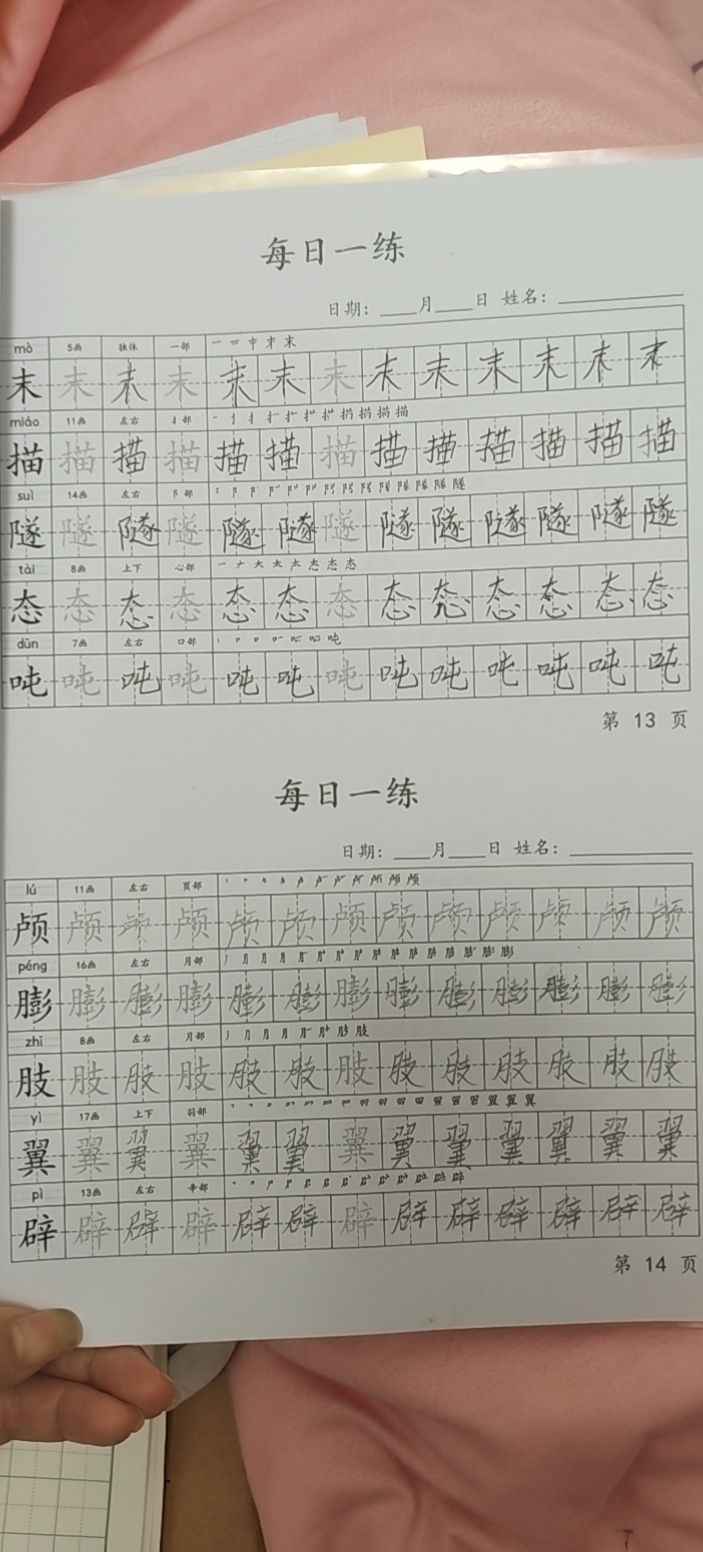 每日一练
日期：____月____日 姓名：__________
mò 5画 独体 一部
末 末 末 末 末 末 末 末 末 末 末 末 末
miáo 11画 左右 扌部
描 描 描 描 描 描 描 描 描 描 描 描 描
suì 14画 左右 阝部
隧 隧 隧 隧 隧 隧 隧 隧 隧 隧 隧 隧 隧
tài 8画 上下 心部
态 态 态 态 态 态 态 态 态 态 态 态 态
dūn 7画 左右 口部
吨 吨 吨 吨 吨 吨 吨 吨 吨 吨 吨 吨 吨
第 13 页
每日一练
日期：____月____日 姓名：__________
lú 11画 左右 页部
颅 颅 颅 颅 颅 颅 颅 颅 颅 颅 颅 颅 颅
péng 16画 左右 月部
膨 膨 膨 膨 膨 膨 膨 膨 膨 膨 膨 膨 膨
zhī 8画 左右 月部
肢 肢 肢 肢 肢 肢 肢 肢 肢 肢 肢 肢 肢
yì 17画 上下 羽部
翼 翼 翼 翼 翼 翼 翼 翼 翼 翼 翼 翼 翼
pì 13画 左右 辛部
辟 辟 辟 辟 辟 辟 辟 辟 辟 辟 辟 辟 辟
第 14 页